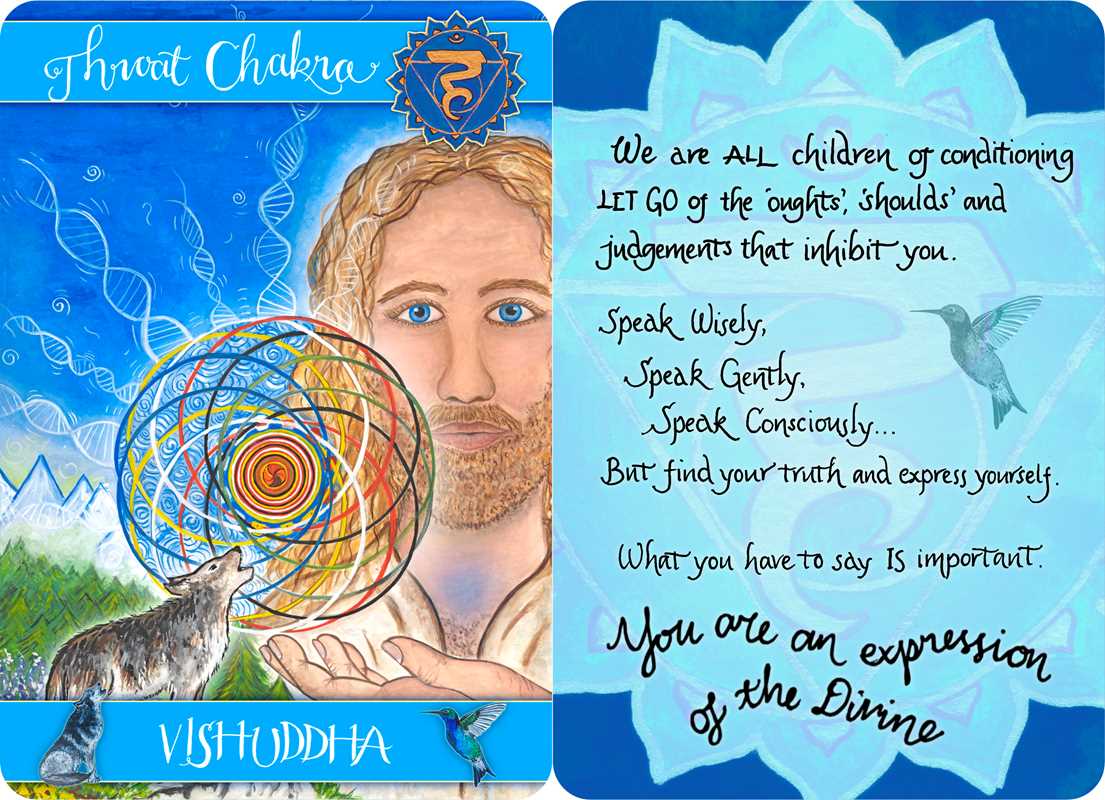 Throat Chakra
VISHUDDHA
We are ALL children of conditioning
LET GO of the 'oughts', 'shoulds' and
judgements that inhibit you.
Speak Wisely,
Speak Gently,
Speak Consciously...
But find your truth and express yourself.
What you have to say IS important.
You are an expression
of the Divine